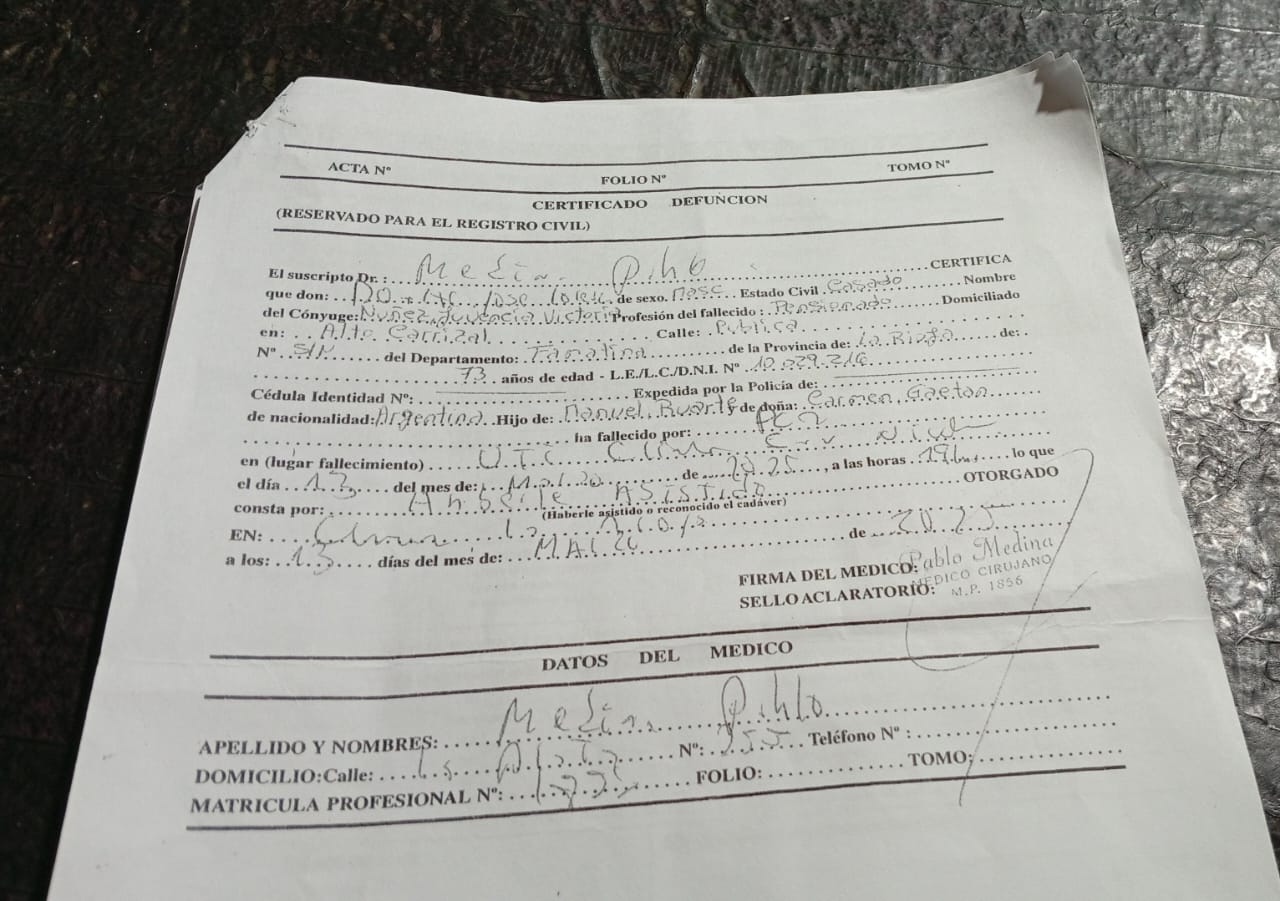 ACTA Nº FOLIO Nº TOMO Nº
CERTIFICADO DEFUNCION
(RESERVADO PARA EL REGISTRO CIVIL)
El suscripto Dr.: Medina Pablo CERTIFICA
que don: José de sexo. Masc Estado Civil Casado Nombre
del Cónyuge: Nuñez, Juvencia Victoria Profesión del fallecido: Pensionado Domiciliado
en: Alto Carrizal Calle: Publica
Nº S/N del Departamento: Famatina de la Provincia de: La Rioja de:
73 años de edad - L.E./L.C./D.N.I. Nº 10.029.216
Cédula Identidad Nº: Expedida por la Policía de:
de nacionalidad: Argentina Hijo de: Manuel Ruarte y de doña: Carmen Gaetan
ha fallecido por: PCR
en (lugar fallecimiento) UTI
el día 13 del mes de: Marzo de 2025, a las horas lo que
consta por: Asistido OTORGADO
(Haberle asistido o reconocido el cadáver)
EN: de 2025
a los: 13 días del mes de: Marzo
FIRMA DEL MEDICO: Pablo Medina
SELLO ACLARATORIO: MEDICO CIRUJANO
M.P. 1856
DATOS DEL MEDICO
APELLIDO Y NOMBRES: Medina Pablo
DOMICILIO: Calle: Nº: Teléfono Nº:
MATRICULA PROFESIONAL Nº: FOLIO: TOMO: